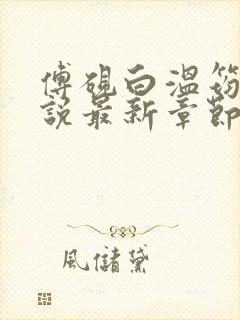 傅硯白溫筠
說最新章節
風儲黛